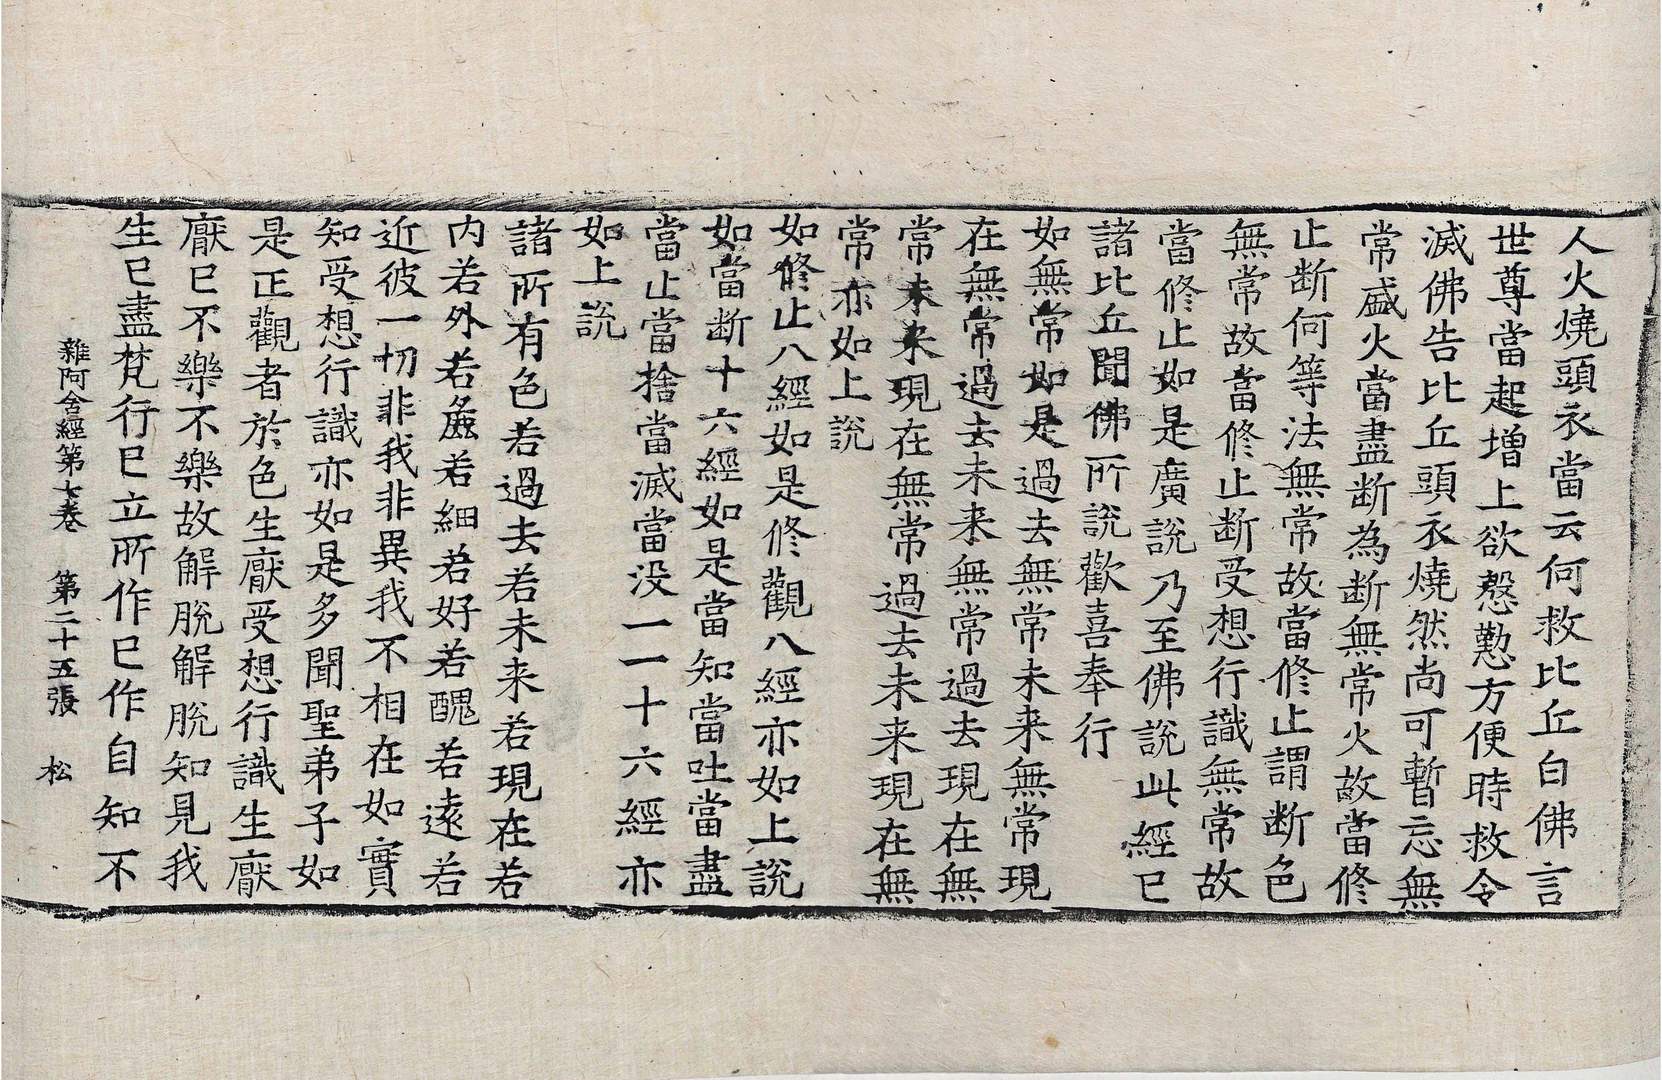 人火燒頭衣當云何救比丘白佛言
世尊當起增上欲慇懃方便時救令
滅佛告比丘頭衣燒然尚可暫忘無
常盛火當盡断為断無常火故當修
止断何等法無常故當修止謂断色
無常故當修止断受想行識無常故
當修止如是廣說乃至佛說此經已
諸比丘聞佛所說歡喜奉行
如無常如是過去無常未来無常現
在無常過去未来無常過去現在無
常未来現在無常過去未来現在無
常亦如上說
如修止八經如是修觀八經亦如上說
如當断十六經如是當知當吐當盡
當止當捨當滅當没一一十六經亦
如上說
諸所有色若過去若未来若現在若
内若外若麁若細若好若醜若遠若
近彼一切非我非異我不相在如實
知受想行識亦如是多聞聖弟子如
是正觀者於色生厭受想行識生厭
厭已不樂不樂故解脫解脫知見我
生已盡梵行已立所作已作自知不
雜阿含經第七卷 第二十五張 松